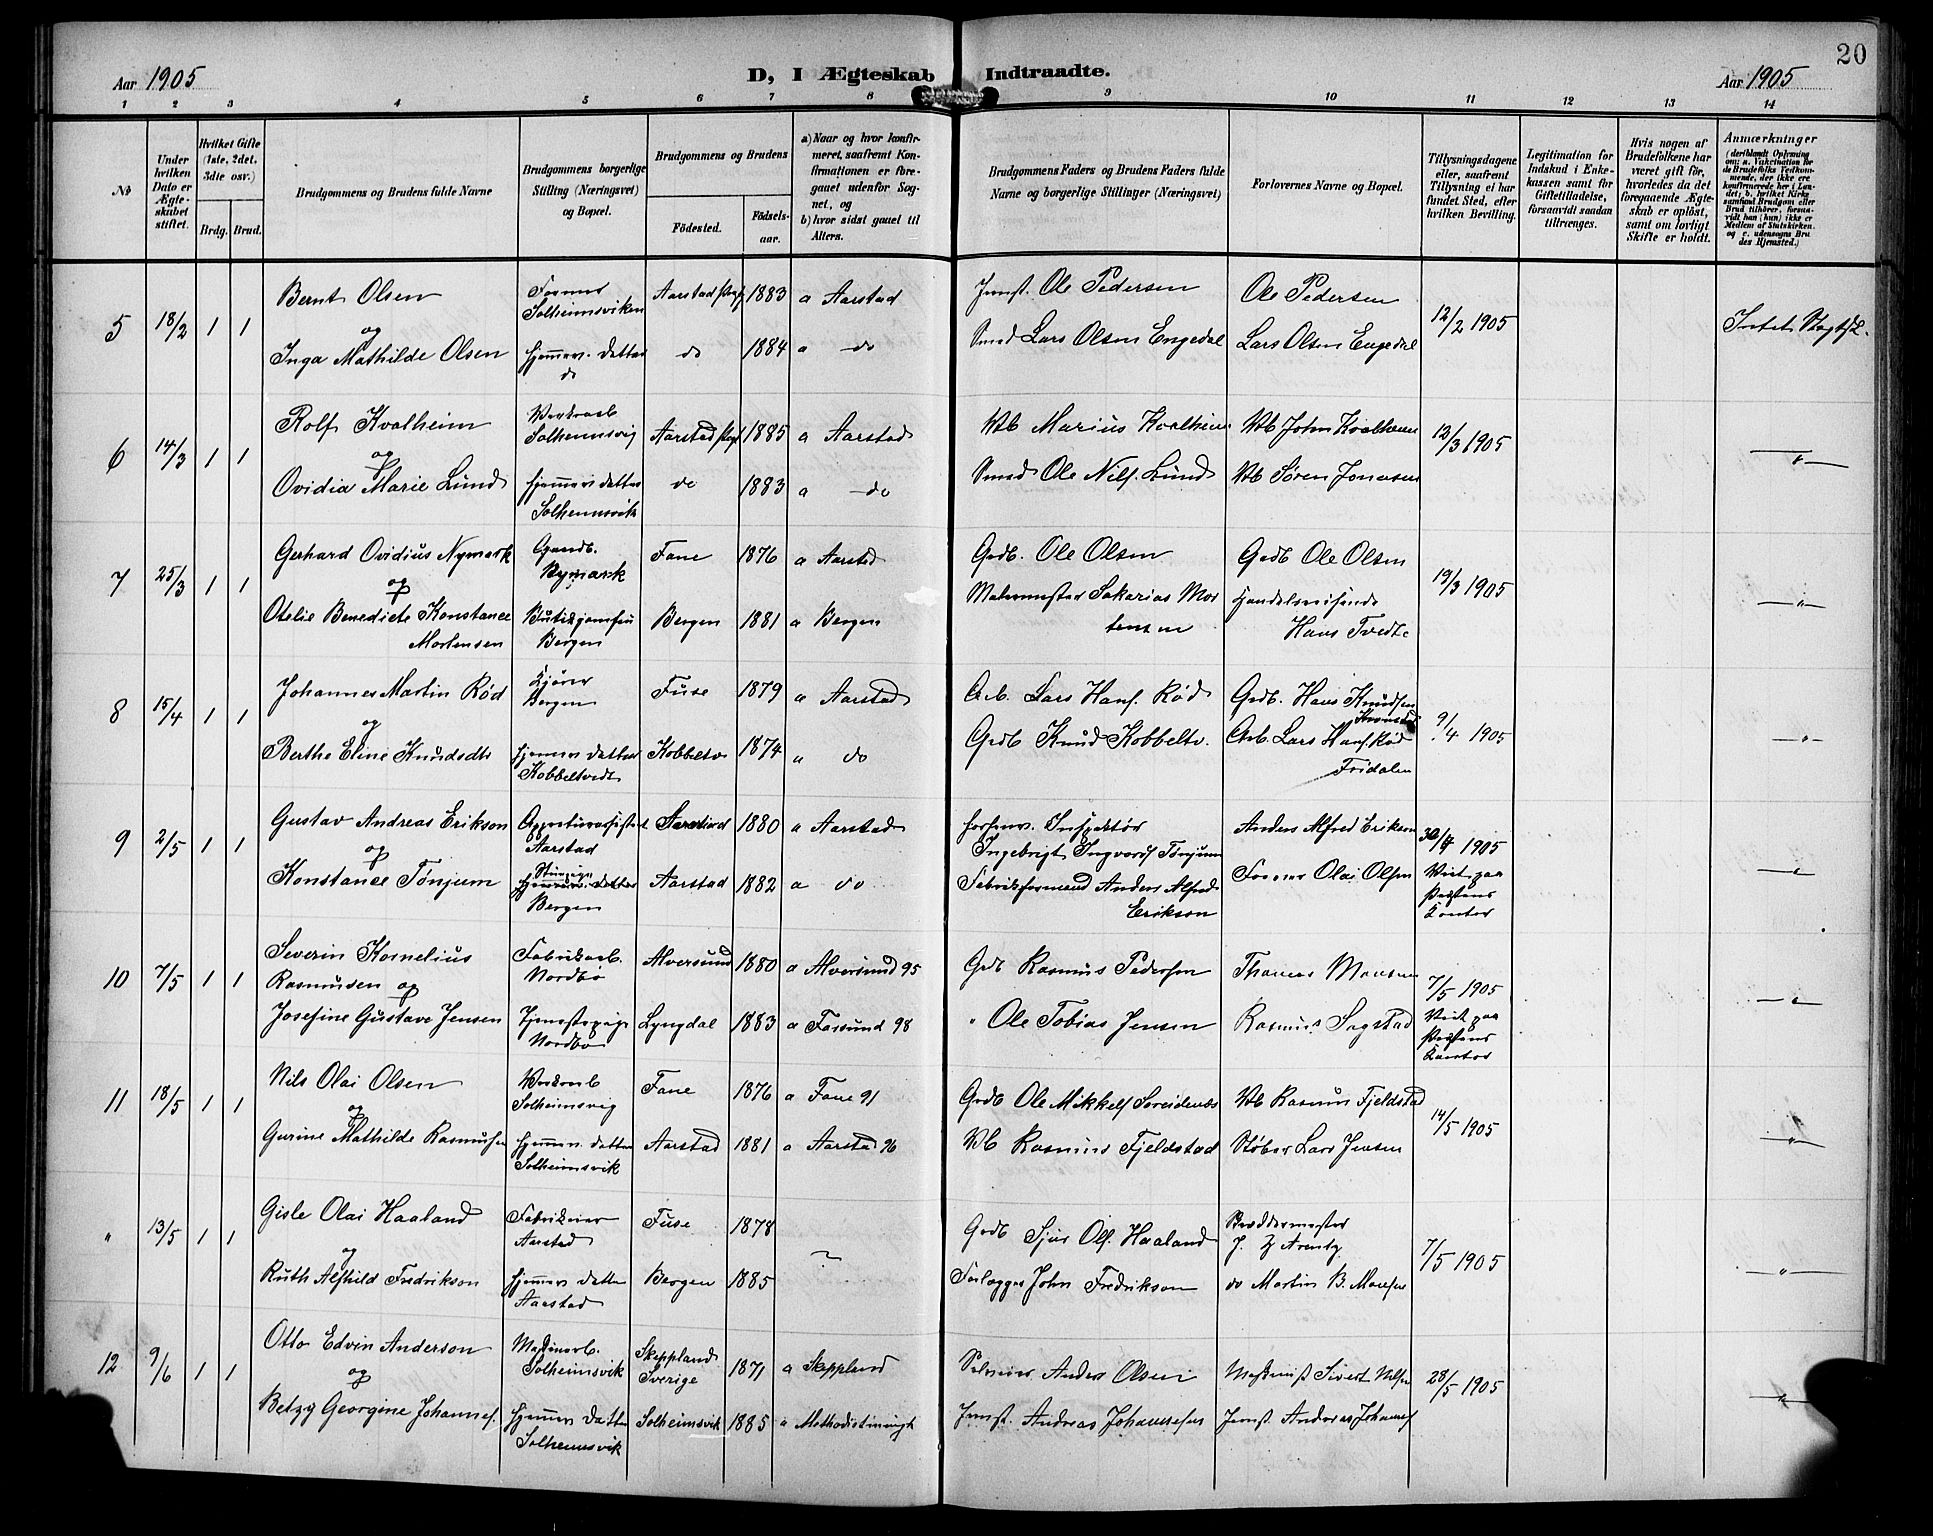 20
Aar 1905
D, I Ægteskab Indtraadte.
Aar 1905
1 2 3 4 5 6 7 8 9 10 11 12 13 14
No
Under hvilken Dato er Ægteskabet stiftet.
Hvilket Gifte (1ste, 2det, 3die osv.)
Brdg. Brud.
Brudgommens og Brudens fulde Navne
Brudgommens borgerlige Stilling (Næringsvei) og Bopæl.
Brudgommens og Brudens
Födested.
Födselsaar.
a) Naar og hvor konfirmeret, saafremt Konfirmationen er foregaaet udenfor Sognet, og
b) hvor sidst gaaet til Alters.
Brudgommens Faders og Brudens Faders fulde Navne og borgerlige Stillinger (Næringsvei)
Forlovernes Navne og Bopæl.
Tillysningsdagene eller, saafremt Tillysning ei har fundet Sted, efter hvilken Bevilling.
Legitimation for Indskud i Enkekassen samt for Giftetilladelse, forsaavidt saadan tiltrænges.
Hvis nogen af Brudefolkene har været gift før, hvorledes da det foregaaende Ægteskab er oplöst, samt om lovligt Skifte er holdt.
Anmærkninger
(deriblandt Oplysning om: a. Vakcination for de Brudefolks Vedkommende, der ikke ere konfirmerede her i Landet; b. hvilket Kirkesamfund Brudgom eller Brud tilhörer, forsaavidt han (hun) ikke er Medlem af Statskirken. og c. udensogns Brudes Hjemsted.)
5 18/2 1 1 Bernt Olsen Former Solheimsviken Aarstad 1883 a Aarstad Jernst. Ole Pedersen Ole Pedersen 12/2 1905 Intet
og
Inga Mathilde Olsen hjemmev. datter do do 1884 a do Smed Lars Olsen Engedal Lars Olsen Engedal
6 14/3 1 1 Rolf Kvalheim Solheimsvig Aarstad 1885 a Aarstad Vb Marius Kvalheim Vb John Kvalheim 12/3 1905 "
og
Ovidia Marie Lund hjemmev datter Solheimsvik do 1883 a do Smed Ole Nils. Lund Vb Søren Jonassen
7 25/3 1 1 Gerhard Ovidius Nymark Gaardb. Nymark Fane 1876 a Aarstad Grdb. Ole Olsen Grdb Ole Olsen 19/3 1905 "
og
Otelie Benedicte Konstance Mortensen Butikjomfru Bergen Bergen 1881 a Bergen Malermester Sakarias Mortensen Handelsreisende Hans Tvedt
8 15/4 1 1 Johannes Martin Rød Kjører Bergen Fuse 1879 a Aarstad Arb. Lars Hans. Rød Grdb. Hans Knudsen 9/4 1905 "
og
Berthe Eline Knudsdtr hjemmev datter Kobbeltvedt Kobbeltv 1874 a do Grdb Knud Kobbeltv. Arb. Lars Hans. Rød Fridalen
9 2/5 1 1 Gustav Andreas Erikson Aarstad Aarstad 1880 a Aarstad Inspektør Ingebrigt Ingvards Tønjum Anders Alfred Erikson 30/4 1905 "
og
Konstance Tønjum hjemmev. datter Bergen Aarstad 1882 a do Fabrikformand Anders Alfreds Erikson Former Olai Olsen Viet paa Præstens Kontor
10 7/5 1 1 Severin Kornelius Rasmussen og Fabrikarb. Nordbø Alversund 1880 a Alversund 95 Grdb Rasmus Pedersen Thomas Monsen 7/5 1905 "
Josefine Gustave Jensen Tjenestepige Nordbø Lyngdal 1883 a Farsund 98 " Ole Tobias Jensen Rasmus Sagstad Viet paa Præstens Kontor
11 18/5 1 1 Nils Olai Olsen Solheimsvig Fane 1876 a Fane 91 Grdb Ole Mikkels Vb Rasmus Fjeldstad 14/5 1905 "
og
Gurine Mathilde Rasmussen hjemmev. datter Solheimsvik Aarstad 1881 a Aarstad 96 Vb Rasmus Fjeldstad Støber Lars Jensen
" 13/5 1 1 Gisle Olai Haaland Fabrikeier Aarstad Fuse 1878 Grdb Sjur Ols. Haaland Skræddermester J. Z Arentz 7/5 1905 "
og
Ruth Alfhild Fredrikson hjemmev datter Aarstad Bergen 1885 Forlægger John Fredrikson do Martin B. Monsen
12 9/6 1 1 Otto Edvin Anderson Maskinarb. Solheimsvik Skeppland Sverige 1871 a Skeppland Selveier Anders Olsen Sivert Nilsen 28/5 1905 "
og
Betzy Georgine Johannes. hjemmev datter Solheimsvik Solheimsvik 1885 a Methodistmenigh Jernst. Andreas Johannesen Jernst. Andreas Johannes.